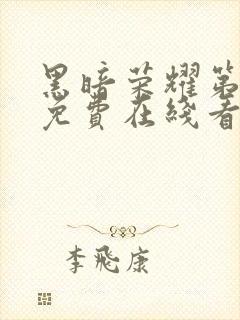 黑暗荣耀第
免費在綫看
李飛康